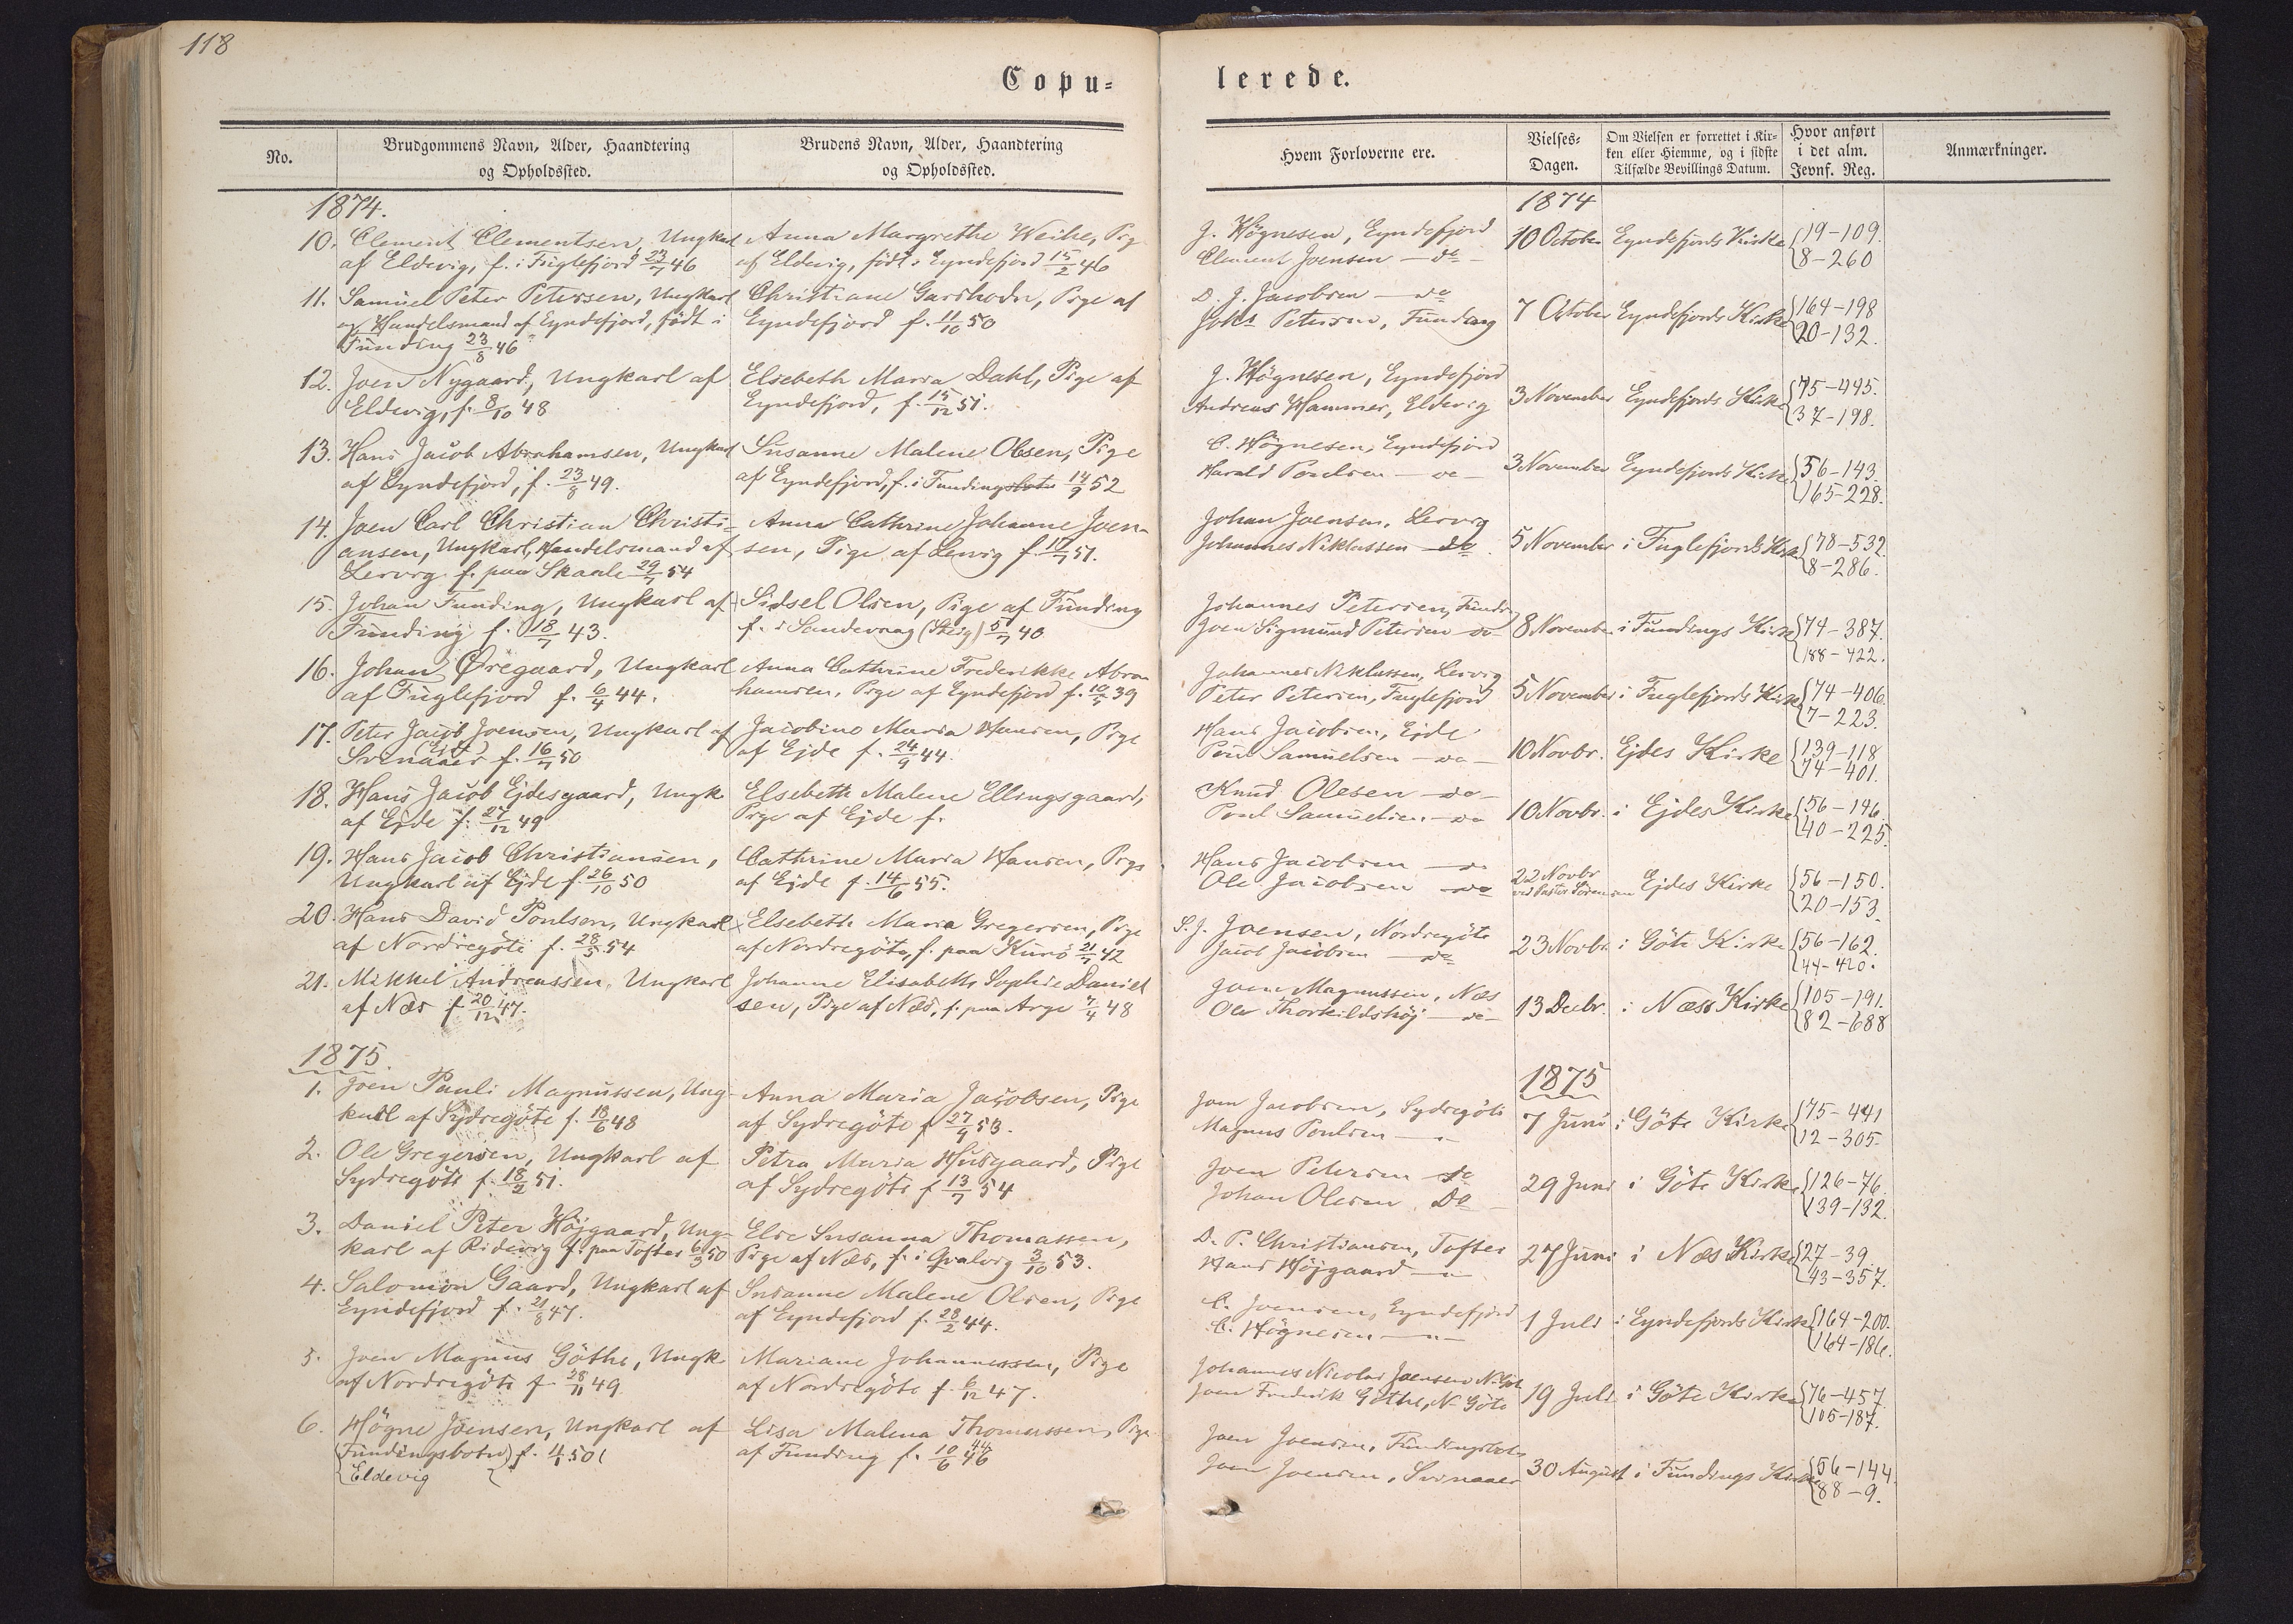 118
Copu-
lerede.
No.
Brudgommens Navn, Alder, Haandtering
og Opholdssted.
Brudens Navn, Alder, Haandtering
og Opholdssted.
Hvem Forloverne ere.
Vielses-
Dagen.
Om Vielsen er forrettet i Kir-
ken eller Hiemme, og i sidste
Tilfælde Bevillings Datum.
Hvor anført
i det alm.
Jevnf. Reg.
Anmærkninger.
1874.
10. Clement Clementsen, Ungkarl
af Eldevig, f. i Fuglefjord 23/7 46
Anna Margrethe Weihe, Pig
af Eldevig, født i Eyndefjord 15/2 46
11. Samuel Peter Petersen, Ungkarl
og Handelsmand af Eyndefjord, født i
Funding 23/8 46
Christiane Garthodn, Pige af
Eyndefjord f. 11/10 50
12. Joen Nygaard, Ungkarl af
Eldevig, f. 8/10 48
Elsebeth Maria Dahl, Pige af
Eyndefjord, f. 15/12 51.
13. Hans Jacob Abrahamsen, Ungkarl
af Eyndefjord, f. 23/8 49.
Susanne Malene Olsen, Pige
af Eyndefjord, f. i Funding 14/9 52
14. Joen Carl Christian Christi-
ansen, Ungkarl, Handelsmand af
Lervig f. paa Skaale 29/7 54
Anna Cathrine Johanne Joen-
sen, Pige af Lervig f. 17/7 51.
15. Johan Funding, Ungkarl af
Funding f. 18/7 43.
Sidsel Olsen, Pige af Funding
f. i Sandevaag (Steig) 5/7 40
16. Johan Øregaard, Ungkarl
af Fuglefjord f. 6/4 44.
Anna Cathrine Frederikke Abra
hamsen, Pige af Eyndefjord f. 10/7 39
17. Peter Jacob Joensen, Ungkarl af
(Ejde)
Svinaaer f. 16/7 50
Jacobine Maria Hansen, Pige
af Ejde f. 24/9 44.
18. Hans Jacob Ejdesgaard, Ungk.
af Ejde f. 27/12 49
Elsebeth Malene Ellingsgaard,
Pige af Ejde f.
19. Hans Jacob Christiansen,
Ungkarl af Ejde f. 26/10 50
Cathrine Maria Hansen, Pige
af Ejde f. 14/6 55.
20. Hans David Poulsen, Ungkarl
af Nordregöte f. 28/5 54
Elsebeth Maria Gregersen, Pige
af Nordregöte, f. paa Kunö 21/7 42
21. Mikkel Andreassen, Ungkarl
af Næs f. 20/12 47.
Johanne Elisabeth Sophie Daniel
sen, Pige af Næs, f. paa Arge 7/4 48
1875.
1. Joen Pauli Magnussen, Ung-
karl af Sydregöte f. 18/6 48
Anna Maria Jacobsen, Pige
af Sydregöte f 27/9 53.
2. Ole Gregersen, Ungkarl af
Sydregöte f. 18/2 51.
Petra Maria Husgaard, Pige
af Sydregöte f 13/7 54
3. Daniel Peter Höjgaard, Ung-
karl af Ridevig f. paa Tofter 6/3 50
Else Susanna Thomassen,
Pige af Næs, f. i Qvalvig 3/10 53.
4. Salomon Gaard, Ungkarl af
Eyndefjord f. 21/8 47.
Susanne Malene Olsen, Pige
af Eyndefjord f. 28/2 44.
5. Joen Magnus Göthe, Ungk.
af Nordregöte f. 28/11 49
Mariane Johannessen, Pige
af Nordregöte f. 6/12 47.
6. Högne Joensen, Ungkarl af
(Fundingsbotn) f. 4/1 50
Eldevig
Lisa Malena Thomassen, Pige
af Funding f. 10/6 46
44
1874
J. Högnesen, Eyndefjord
Clement Joensen — do —
10 October
Eyndefjords Kirke
19–109.
8–260
D. J. Jacobsen — do
Johs Petersen, Funding
7 October
Eyndefjords Kirke
164–198
20–132.
J. Högnesen, Eyndefjord
Andreas Hammer, Eldevig
3 November
Eyndefjords Kirke
75–495.
37–198.
C. Högnesen, Eyndefjord
Harald Poulsen — do —
3 November
Eyndefjords Kirke
56–143.
165–228.
Johan Joensen, Lervig
Johannes Niklassen — do.
5 November
i Fuglefjords Kirke
78–532
8–286.
Johannes Petersen, Funding
Joen Sigmund Petersen — do —
8 November
i Fundings Kirke
74–387.
188–422.
Johannes Niklassen, Lervig
Peter Petersen, Fuglefjord
5 November
i Fuglefjords Kirke
74–406.
7–223.
Hans Jacobsen, Ejde
Poul Samuelsen — do —
10 Novbr.
Ejdes Kirke
139–118
74–401.
Knud Olesen — do —
Poul Samuelsen — do
10 Novbr.
i Ejdes Kirke
56–146
40–225.
Hans Jacobsen — do
Ole Jacobsen — do
22 Novbr
ved Pastor Sörensen
Ejdes Kirke
56–150.
20–153.
S. J. Joensen, Nordregöte
Jacob Jacobsen — do
23 Novbr.
i Göte Kirke
56–162.
44–420.
Joen Magnussen, Næs
Ole Thorkildshöj — do —
13 Decbr.
i Næs Kirke
105–191.
82–688
1875
Joen Jacobsen, Sydregöte
Magnus Poulsen — " —
7 Juni
i Göte Kirke
75–441
12–305.
Joen Petersen do
Johan Olesen Do
29 Juni
i Göte Kirke
126–76.
139–132.
D. P. Christiansen, Tofter
Hans Höjgaard — " —
27 Juni
i Næs Kirke
27–39.
43–357.
C. Joensen, Eyndefjord
C. Högnesen — " —
1 Juli
i Eyndefjords Kirke
164–200.
164–186.
Johannes Nicolai Joensen N. Göt
Joen Frederik Göthe, N. Göte
19 Juli
i Göte Kirke
76–457.
105–187.
Joen Joensen, Fundingsbotn
Joen Joensen, Svinaaer
30 August
i Fundings Kirke
56–144.
88–9.